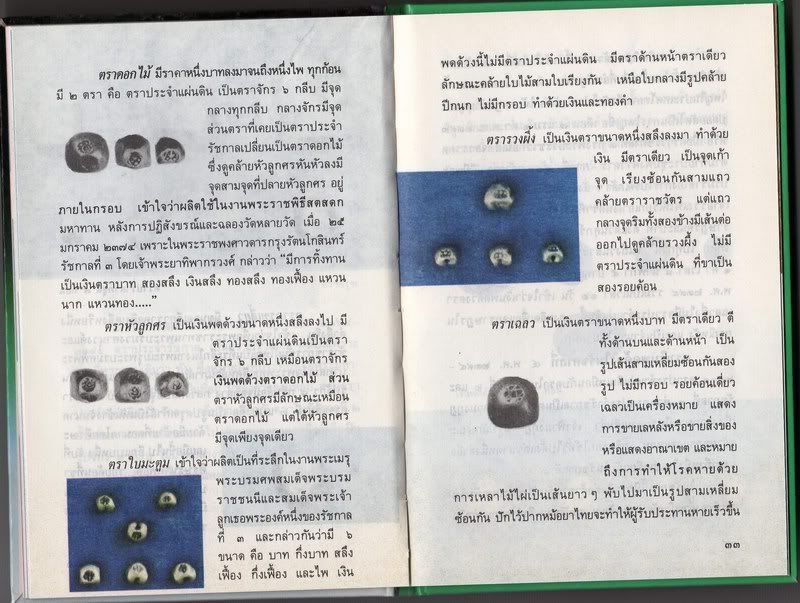 ตราดอกไม้ มีราคาหนึ่งบาทลงมาจนถึงหนึ่งไพ ทุกก้อน
มี ๒ ตรา คือ ตราประจำแผ่นดิน เป็นตราจักร ๖ กลีบ มีจุด
กลางทุกกลีบ กลางจักรมีจุด
ส่วนตราที่เคยเป็นตราประจำ
รัชกาลเปลี่ยนเป็นตราดอกไม้
ซึ่งดูคล้ายหัวลูกศรหันหัวลงมี
จุดสามจุดที่ปลายหัวลูกศร อยู่
ภายในกรอบ เข้าใจว่าผลิตใช้ในงานพระราชพิธีสตสดก
มหาทาน หลังการปฏิสังขรณ์และฉลองวัดหลายวัด เมื่อ ๒๕
มกราคม ๒๓๗๔ เพราะในพระราชพงศาวดารกรุงรัตนโกสินทร์
รัชกาลที่ ๓ โดยเจ้าพระยาทิพากรวงศ์ กล่าวว่า "มีการทิ้งทาน
เป็นเงินตราบาท สองสลึง เงินสลึง ทองสลึง ทองเฟื้อง แหวน
นาก แหวนทอง....."
ตราหัวลูกศร เป็นเงินพดด้วงขนาดหนึ่งสลึงลงไป มี
ตราประจำแผ่นดินเป็นตรา
จักร ๖ กลีบ เหมือนตราจักร
เงินพดด้วงตราดอกไม้ ส่วน
ตราหัวลูกศรมีลักษณะเหมือน
ตราดอกไม้ แต่ใต้หัวลูกศร
มีจุดเพียงจุดเดียว
ตราใบมะตูม เข้าใจว่าผลิตเป็นที่ระลึกในงานพระเมรุ
พระบรมศพสมเด็จพระบรม
ราชชนนีและสมเด็จพระเจ้า
ลูกเธอพระองค์หนึ่งของรัชกาล
ที่ ๓ และกล่าวกันว่ามี ๖
ขนาด คือ บาท กึ่งบาท สลึง
เฟื้อง กึ่งเฟื้อง และไพ เงิน
พดด้วงนี้ไม่มีตราประจำแผ่นดิน มีตราด้านหน้าตราเดียว
ลักษณะคล้ายใบไม้สามใบเรียงกัน เหนือใบกลางมีรูปคล้าย
ปีกนก ไม่มีกรอบ ทำด้วยเงินและทองคำ
ตรารวงผึ้ง เป็นเงินตราขนาดหนึ่งสลึงลงมา ทำด้วย
เงิน มีตราเดียว เป็นจุดเก้า
จุด เรียงซ้อนกันสามแถว
คล้ายตราราชวัตร แต่แถว
กลางจุดริมทั้งสองข้างมีเส้นต่อ
ออกไปดูคล้ายรวงผึ้ง ไม่มี
ตราประจำแผ่นดิน ที่ขาเป็น
สองรอยค้อน
ตราเฉลว เป็นเงินตราขนาดหนึ่งบาท มีตราเดียว ตี
ทั้งด้านบนและด้านหน้า เป็น
รูปเส้นสามเหลี่ยมซ้อนกันสอง
รูป ไม่มีกรอบ รอยค้อนเดียว
เฉลวเป็นเครื่องหมาย แสดง
การขายเลหลังหรือขายสิ่งของ
หรือแสดงอาณาเขต และหมาย
ถึงการทำให้โรคหายด้วย
การเหลาไม้ไผ่เป็นเส้นยาว ๆ พับไปมาเป็นรูปสามเหลี่ยม
ซ้อนกัน ปักไว้ปากหม้อยาไทยจะทำให้ผู้รับประทานหายเร็วขึ้น
๓๓